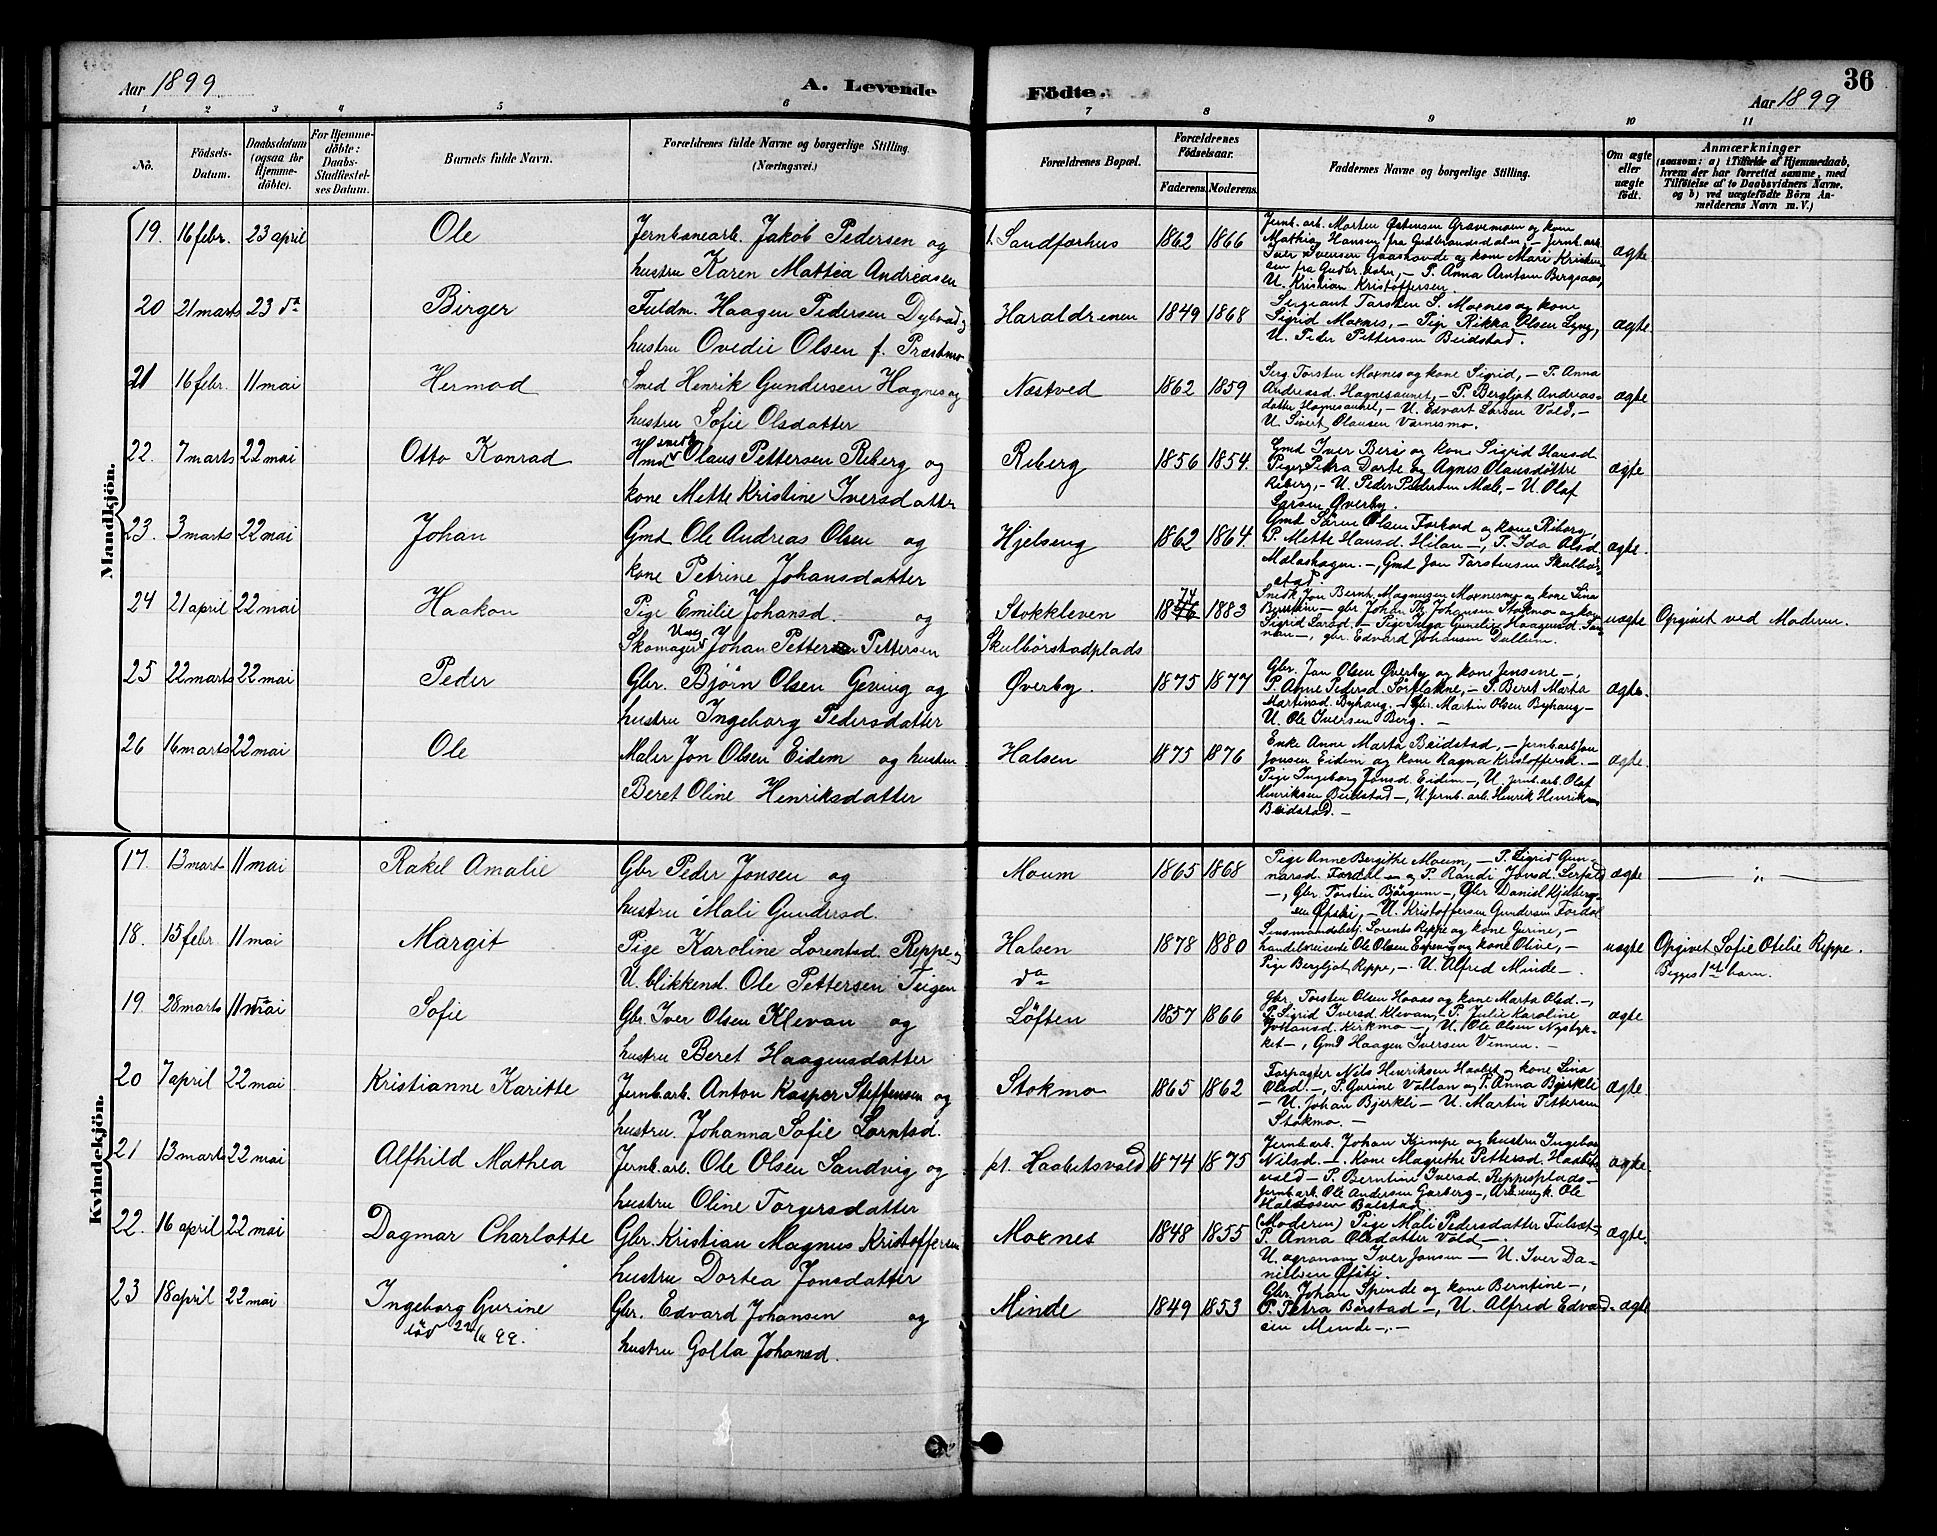 Aar 1899
A. Levende
Födte.
36
Aar 1899
1 2 3 4 5 6 7 8 9 10 11
No.
Födsels-
Datum.
Daabsdatum
(ogsaa for
Hjemme-
döbte).
For Hjemme-
döbte:
Daabs-
Stadfæstel-
ses Datum.
Barnets fulde Navn.
Forældrenes fulde Navne og borgerlige Stilling.
(Næringsvei.)
Forældrenes Bopæl.
Forældrenes
Födselsaar.
Faderens. Moderens.
Faddernes Navne og borgerlige Stilling.
Om ægte
eller
uægte
födt.
Anmærkninger
(saasom: a) i Tilfælde af Hjemmedaab,
hvem der har forrettet samme, med
Tilföielse af to Daabsvidners Navne,
og b) ved uægtefödte Börn An-
melderens Navn m. V.)
Mandkjön.
19. 16 febr. 23 april Ole
Jernbanearb. Jakob Pedersen og
hustru Karen Mattea Andreasen
Sandfærhus 1862 1866
Jernb. arb. Morten Gravemoen og kone
Mathia Hansen fra Gudbrandsdalen, - Jernb. arb.
Iver Iversen og kone Mari
fra Gudbr. dalen, - P. Anna Arntsen Bergsaas,
U. Kristian Kristoffersen.
ægte
20 21 marts 23 da Birger
Fuldm. Haagen Pedersen og
hustru Ovedie Olsen f. Præstmo
Haraldreinen 1849 1868
Sergeant Torsten S. Moxnes og kone
Sigrid Moxnes, - Pige Rikka Olsen Lyng,
U. Peder Pettersen Beidstad.
ægte
21 16 febr. 11 mai Hermod
Smed Henrik Gundersen Hognes og
hustru Sofie Olsdatter
Næstved 1862 1859
Serg. Torsten Moxnes og kone Sigrid, - P. Anna
Andreasd. Hognesaunet, - P. Bergljot Andreas-
datter Hognesaunet, - U. Edvart Larsen Vold, -
U. Sivert Olausen Værnesmo.
ægte
22. 7 marts 22 mai Otto Konrad
Hmd Olaus Pettersen Reberg og
kone Mette Kristine Iversdatter
Reberg 1856 1854.
Gmd Iver Berg og kone Sigrid Hansd
Piger Petra Dorte og Agnes Olausdøttre
Reberg, - U. Peder Pedersen Mæle, - U. Olaf
Larsen Øverby.
ægte
23. 3 marts 22 mai Johan
Gmd Ole Andreas Olsen og
kone Petrine Johansdatter
Hjelseng 1862 1864.
Gmd Sören Olsen Forbord og kone
P. Mette Hansd. Hilan -, P. Ida Olsd.
-, Gmd Jon Torstensen Skulbör-
stad.
ægte.
24 21 april 22 mai Haakon
Pige Emilie Johansd. og
Ung
Skomager Johan Pettersen Pettersen
Stokkleven
Skulbörstadplads
74
1876 1883
Smed Jon Bernt. Magnussen Moxnesmo og kone Lina
- gbr. Johan Th. Johansen Stokmo og kone
Sigrid Larsd. - Pige Helga Gunelie Haagensd.
-, gbr. Edvard Johansen Dullum.
uægte Opgivet ved Moderen.
25 22 marts 22 mai Peder
Gbr. Björn Olsen Geving og
hustru Ingeborg Pedersdatter
Øverby. 1875 1877
Gbr. Jon Olsen Øverby og kone Jensine -,
P. Anne Pedersd. -, P. Beret Marta
Martinsd. Byhaug, - Gbr. Martin Olsen Byhaug -
U. Ole Iversen Berg. -
ægte.
26 16 marts 22 mai Ole
Maler Jon Olsen Eidem og hustru
Beret Oline Henriksdatter
Halsen 1875 1876
Enke Anne Marta Beidstad, - Jernb. arb. Jon
Jonsen Eidem og kone Ragna Kristoffersd. -
Pige Ingeborg Jonsd. Eidem -, U. jernb. arb. Olaf
Henriksen Beidstad -, U. jernb. arb. Henrik Henriksen
Beidstad. -
ægte.
Kvindekjön.
17. 13 mart 11 mai Rakel Amalie
Gbr Peder Jonsen og
hustru Mali Gundersd.
Moum 1865 1868
Pige Anne Bergithe Moum, - P. Sigrid Gun-
narsd. Fordal - og P. Randi Jonsd.
-, Gbr. Torsten Björgum -, Gbr Daniel
Öfsti, - U. Kristoffersen Gundersen Fordal
ægte
18. 15 febr 11 mai Margit
Pige Karoline Lorentsd. Reppe og
U. blikkensl. Ole Pettersen Teigen
Halsen
da
1878 1880
Lensmandsbetj. Lorents Reppe og kone Gurine, -
handelsreisende Ole Olsen og kone Oline, -
Pige Bergljot Reppe, - U. Alfred Minde -.
uægte Opgivet Sofie Otelie Reppe.
Begges 1st barn.
19. 28 marts 11 mai Sofie
Gbr. Iver Olsen Klevan og
hustru Beret Haagensdatter
Løften 1857 1866
Gbr. Torsten Olsen Haaas og kone Marta Olsd. -,
P. Sigrid Iversd. Klevan, P. Julie Karoline
Johansd. Kirkmo -, U. Ole Olsen Nystyk-
ket -, Gmd Haagen Iversen Vennen. -
ægte
20 7 april 22 mai Kristianne Karitte
Jernb. arb. Anton Kasper Steffensen og
hustru. Johanna Sofie Lorntsd.
Stokmo 1865 1862
Forpagter Nils Henriksen Haabet og kone Lina
Olsd. -, P. Gurine Vollan og P. Anna Bjerkli
- U. Johan Bjerkli - U. Martin Pettersen
Stokmo. -
ægte
21 13 marts 22 mai Alfhild Mathea
Jernb. arb. Ole Olsen Sandvig og
hustru Oline Torgersdatter
pt. Haabetsvold 1874 1875
Jernb. arb. Johan Kjempe og hustru Ingeborg
Nilsd. -. Kone Magrethe Pettersd. Haabets
vold - P. Berntine Iversd. Reppesplads -
Jernb. arb. Ole Andersen Garberg -, Ole
Balstad.
ægte.
22. 16 april 22 mai Dagmar Charlotte
Gbr. Kristian Magnus Kristoffersen
hustru Dortea Jonsdatter
Moxnes 1848 1855
(Moderen) Pige Mali Pedersdatter
P. Anna Olsdatter Vold -.
U. agronom Iver Jonsen - U. Iver Da-
nielsen Öfsti.
ægte.
23 18 april 22 mai Ingeborg Gurine
död 22/6 99.
Gbr. Edvard Johansen og
hustru Golla Johansd.
Minde 1849 1853
Gbr Johan Spende og kone Berntine -,
P. Petra Börstad -, U. Alfred Edvard-
sen Minde -. -
ægte